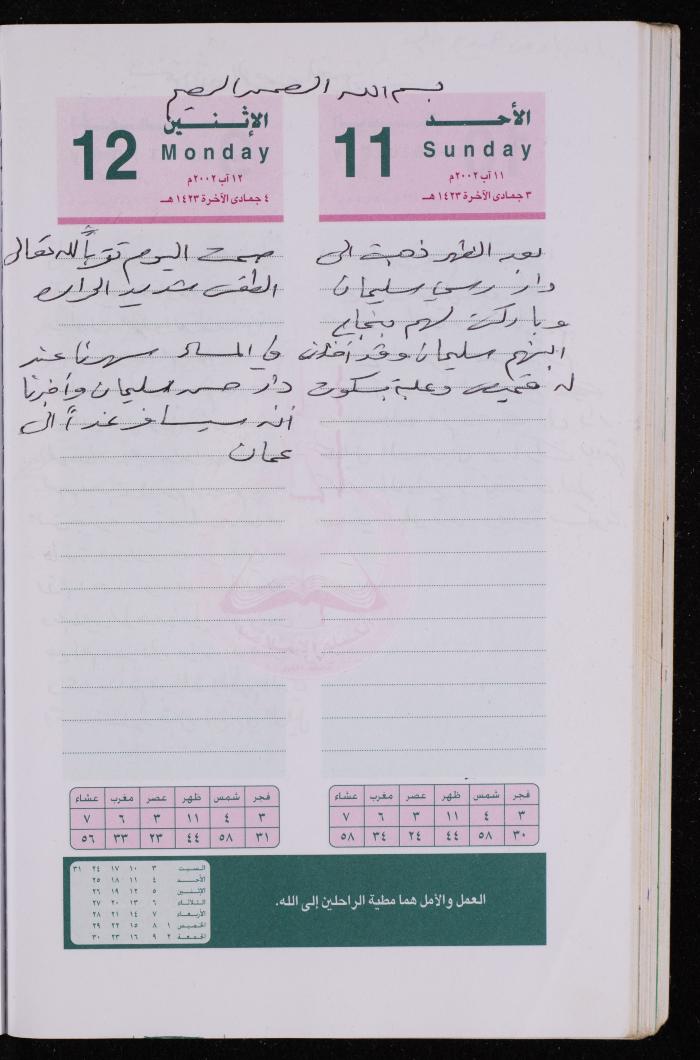 بسم الله الرحمن الرحيم
الأحد
11
Sunday
١١ آب ٢٠٠٢م
٣ جمادى الآخرة ١٤٢٣هـ
بعد الظهر ذهبت الى
دار رسمي سليمان
وباركت لهم بنجاح
ابنهم سليمان وقد أخذت
له قميص وعلبة بسكوت
الإثنين
12
Monday
١٢ آب ٢٠٠٢م
٤ جمادى الآخرة ١٤٢٣هـ
صمت اليوم تقرباً لله تعالى
الطقس شديد الحرارة
في المساء سهرنا عند
دار حسن سليمان وأخبرنا
أنه سيسافر غداً الى
عمان
فجر شمس ظهر عصر مغرب عشاء
٣ ٤ ١١ ٣ ٦ ٧
٣٠ ٥٨ ٤٤ ٢٤ ٣٤ ٥٨
فجر شمس ظهر عصر مغرب عشاء
٣ ٤ ١١ ٣ ٦ ٧
٣١ ٥٨ ٤٤ ٢٣ ٣٣ ٥٦
العمل والأمل هما مطية الراحلين إلى الله.
السبت ٣ ١٠ ١٧ ٢٤ ٣١
الأحد ٤ ١١ ١٨ ٢٥
الإثنين ٥ ١٢ ١٩ ٢٦
الثلاثاء ٦ ١٣ ٢٠ ٢٧
الأربعاء ٧ ١٤ ٢١ ٢٨
الخميس ١ ٨ ١٥ ٢٢ ٢٩
الجمعة ٢ ٩ ١٦ ٢٣ ٣٠